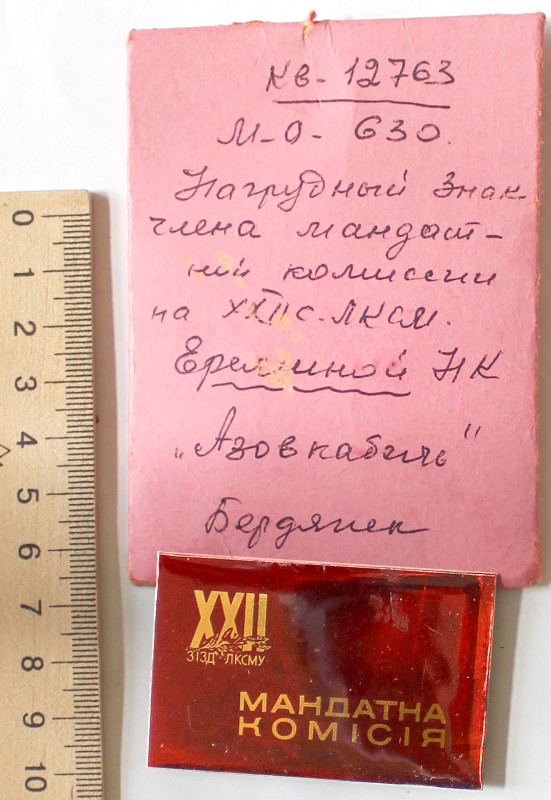 Кв-12763
М-О- 630.
Нагрудный знак
члена мандат-
ний комиссии
на XXII с-ЛКСМ.
Ереминой НК
„Азовкабель"
Бердянск
XXII
З'ЇЗД ЛКСМУ
МАНДАТНА
КОМІСІЯ
0
1
2
3
4
5
6
7
8
9
10